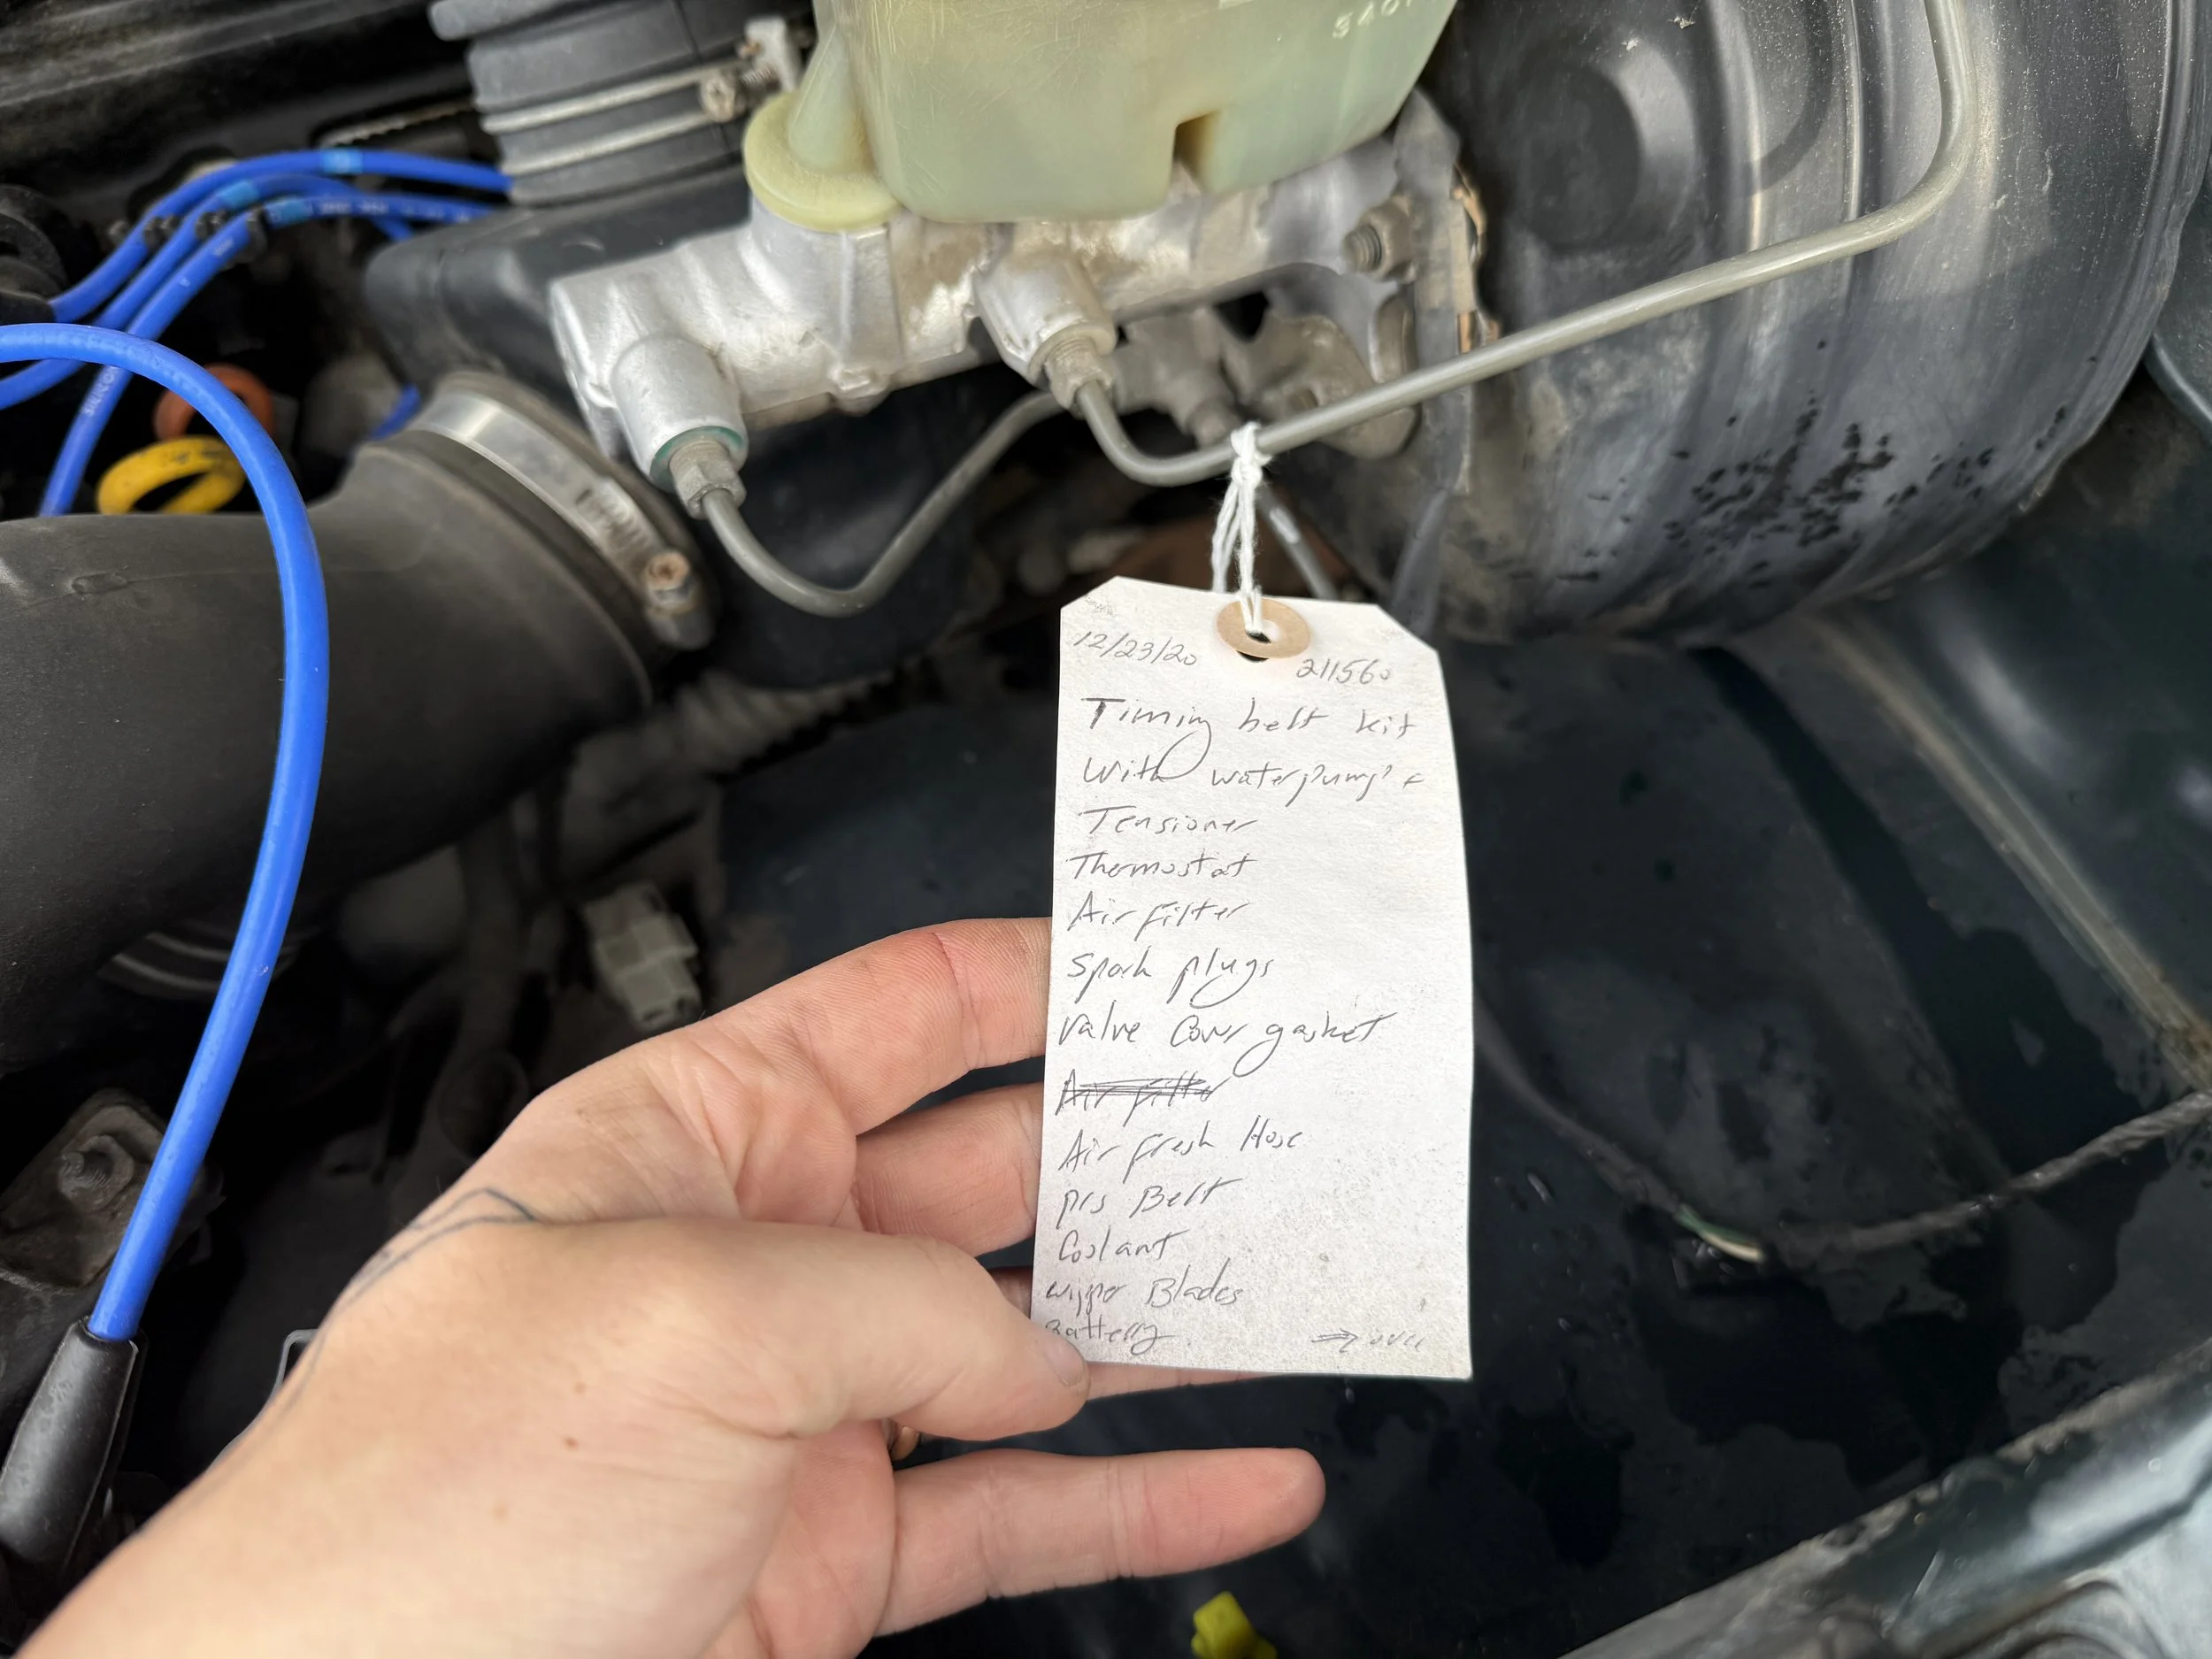 12/23/20 211560
Timing belt kit
With waterpump &
Tensioner
Thermostat
Air filter
Spark plugs
Valve Cover gasket
Air filter
Air fresh Hose
prs Belt
Coolant
wiper Blades
Battery → over